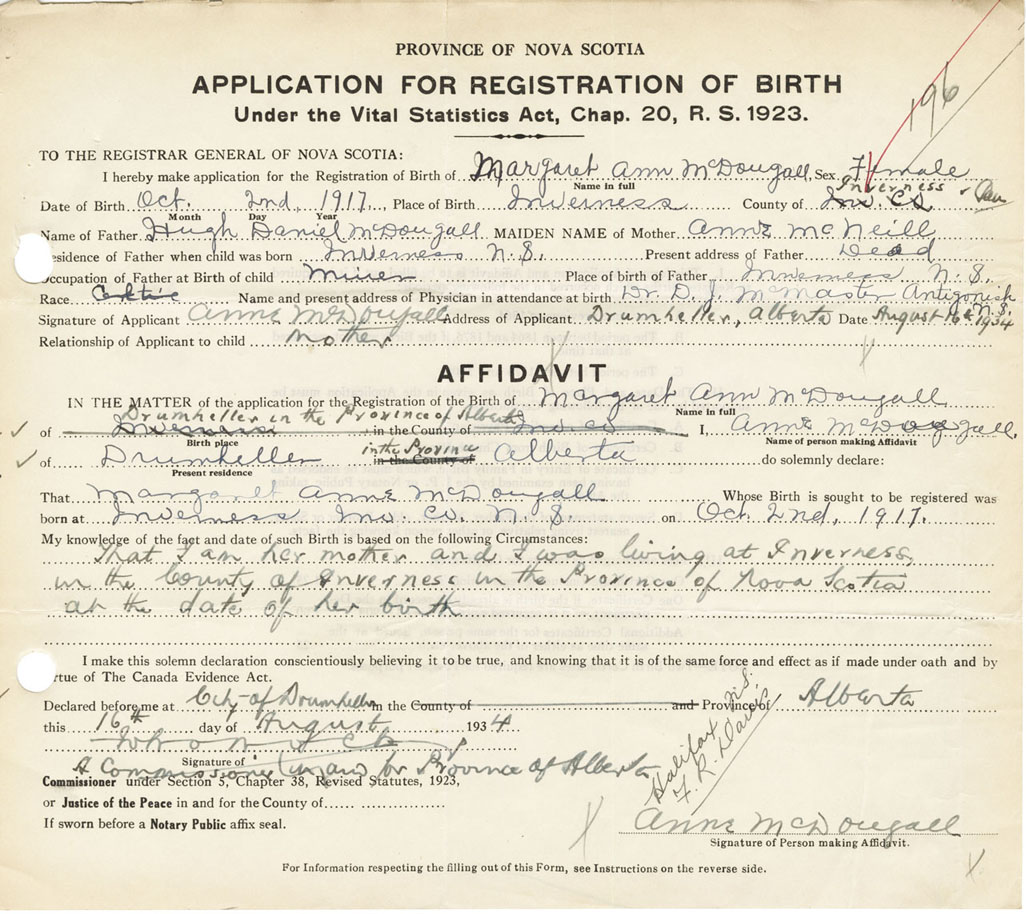 196
PROVINCE OF NOVA SCOTIA
APPLICATION FOR REGISTRATION OF BIRTH
Under the Vital Statistics Act, Chap. 20, R. S. 1923.
TO THE REGISTRAR GENERAL OF NOVA SCOTIA:
I hereby make application for the Registration of Birth of Margaret Ann McDougall, Sex Female
Name in full
Inverness
Date of Birth Oct. 2nd, 1917, Place of Birth Inverness County of Inv. Co
Month Day Year
Name of Father Hugh Daniel McDougall MAIDEN NAME of Mother Anne McNeill
esidence of Father when child was born Inverness N.S. Present address of Father Dead
Occupation of Father at Birth of child Miner Place of birth of Father Inverness N.S.
Race Celtic Name and present address of Physician in attendance at birth Dr D. J. McMaster Antigonish N.S.
Signature of Applicant Anne McDougall Address of Applicant Drumheller, Alberta Date August 16th 1934
Relationship of Applicant to child Mother
AFFIDAVIT
IN THE MATTER of the application for the Registration of the Birth of Margaret Ann McDougall
Name in full
Drumheller in the Province of Alberta
of Inverness in the County of Inv co I, Anne McDougall,
Birth place Name of person making Affidavit
of Drumheller in the Province in the County of Alberta do solemnly declare:
Present residence
That Margaret Anne McDougall Whose Birth is sought to be registered was
born at Inverness Inv. Co. N.S. on Oct. 2nd, 1917.
My knowledge of the fact and date of such Birth is based on the following Circumstances:
That I am her mother and I was living at Inverness,
in the County of Inverness in the Province of Nova Scotia
at the date of her birth
I make this solemn declaration conscientiously believing it to be true, and knowing that it is of the same force and effect as if made under oath and by
rtue of The Canada Evidence Act.
Declared before me at City of Drumheller in the County of and Province of Alberta
this 16th day of August 1934
Signature of
A Commissioner for Province of Alberta
Commissioner under Section 5, Chapter 38, Revised Statutes, 1923,
or Justice of the Peace in and for the County of
If sworn before a Notary Public affix seal.
Halifax N.S.
F. R. Davis
Anne McDougall
Signature of Person making Affidavit.
For Information respecting the filling out of this Form, see Instructions on the reverse side.